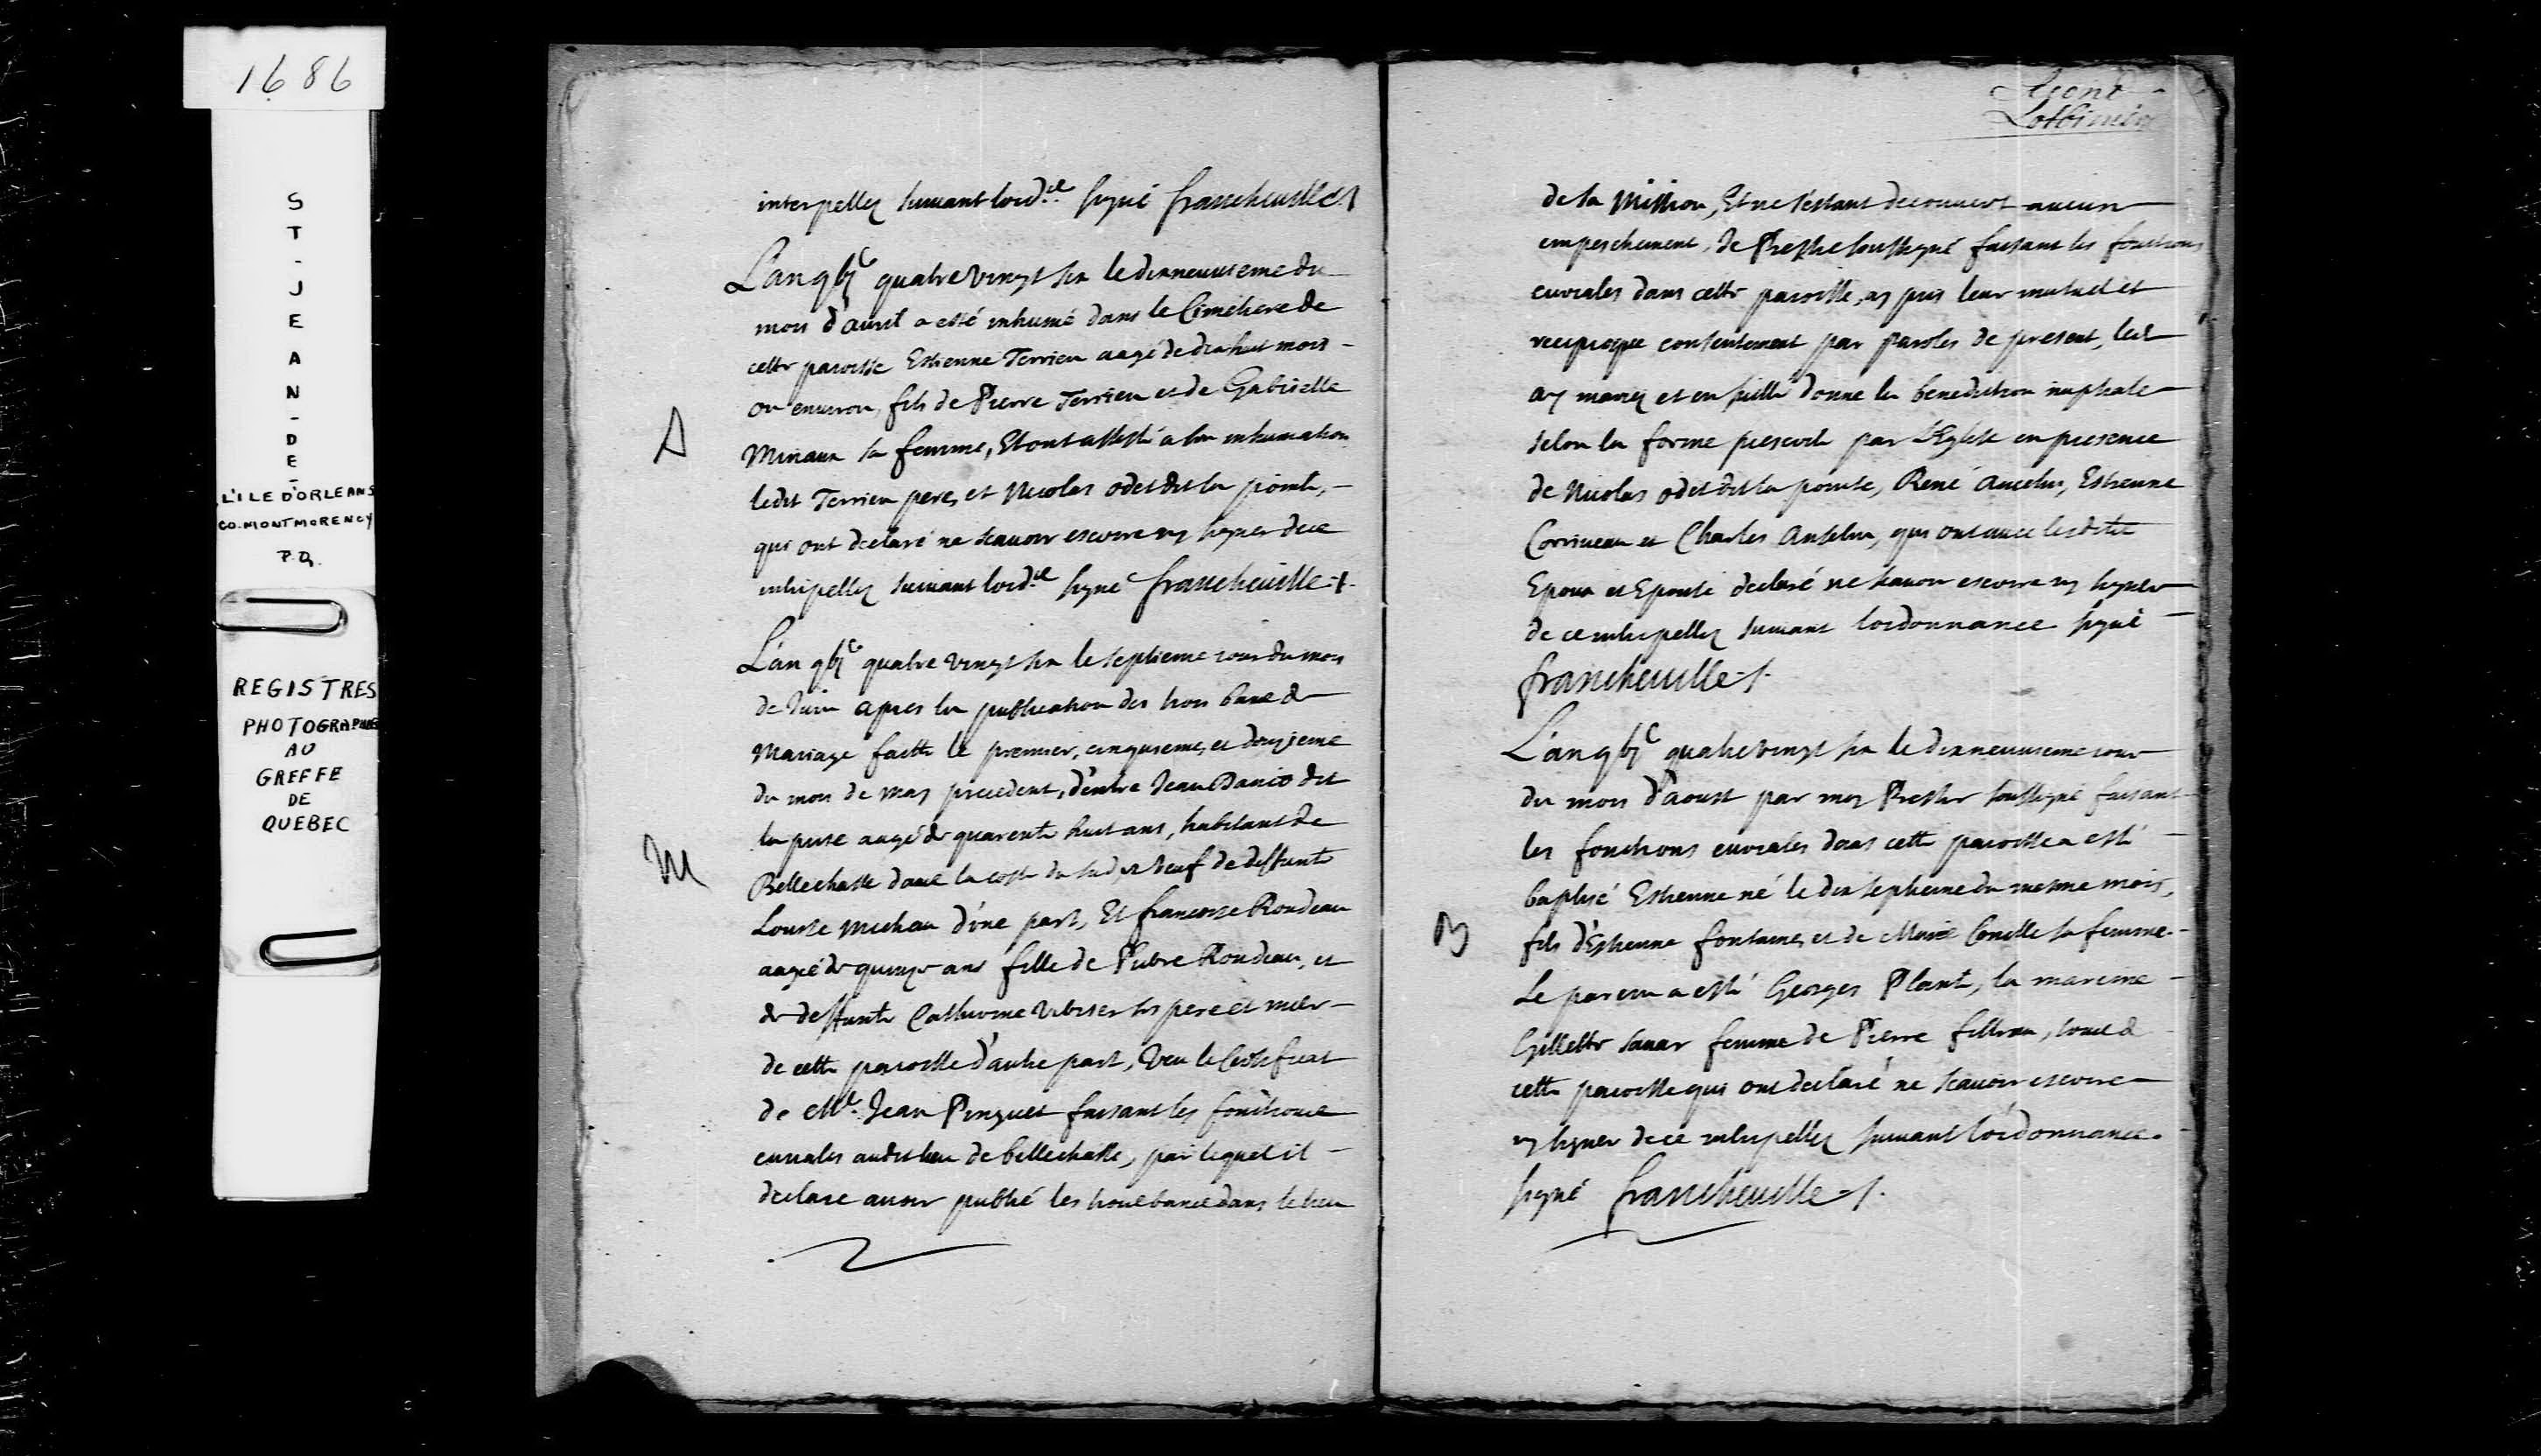 1686
ST-JEAN-DE-
L'ILE D'ORLEANS
CO. MONTMORENCY
P.Q.
REGISTRES
PHOTOGRAPHIÉS
AU
GREFFE
DE
QUEBEC
interpellez suivant lord.ce signé francheuille
L'an gbjc quatre vingt six le dixneuuieme du
mois d'auril a esté inhumé dans le Cimetiere de
cette paroisse Estienne Terrien aagé de dixhuit mois
ou enuiron, fils de Pierre Terrien et de Gabrielle
A
Minaux sa femme, Et ont assisté a son inhumation
ledit Terrien pere, et Nicolas odet dit la pointe,
qui ont declaré ne scauoir escrire ny signer de ce
interpellez suiuant lord.ce signe francheuille
L'an gbjc quatre vingt six le septieme iour du mois
de Juin apres la publication des trois bans de
Mariage faitte le premier, cinquieme, et douzieme
du mois de may precedent, d'entre Jean Daniau dit
la prise aagé de quarente huit ans, habitant de
M
Bellechasse dans la coste du sud, et veuf de deffunte
Louise michau d'une part, Et francoise Rondeau
aagée de quinze ans fille de Pierre Rondeau, et
de deffunte Catherine Verrier ses pere et mere
de cette paroisse d'autre part, Veu le Certificat
de Mr. Jean Pinguet faisant les fonctions
curiales audit lieu de bellechasse, par lequel il
declare auoir publié les trois bans dans le lieu
Lotbiniere
de sa Mission, Et ne s'estant decouuert aucun
empeschement, Je Prestre soussigné faisant les fonctions
curiales dans cette paroisse, ay pris leur mutuel et
reciproque consentement par paroles de present, les
ay mariez et en suitte donne la benediction nuptiale
selon la forme prescrite par L'Eglise en presence
de Nicolas odet dit la pointe, René Ancelin, Estienne
Corriueau et Charles Anselin, qui ont auec lesdits
Epoux et Epouse declaré ne scauoir escrire ny signer
de ce interpellez suiuant l'ordonnance signé
francheuille
L'an gbjc quatre vingt six le dixneuuieme iour
du mois d'aoust par moy Prestre soussigné faisant
les fonctions curiales dans cette paroisse a esté
baptisé Estienne né le dix septieme du mesme mois,
B
fils d'Estienne fontaine, et de Marie Conille sa femme.
Le parein a esté Georges Plante, la mareine
Gillette sauar femme de Pierre filteau, tous de
cette paroisse qui ont declaré ne scauoir escrire
ny signer de ce interpellez suiuant l'ordonnance.
signé francheuille